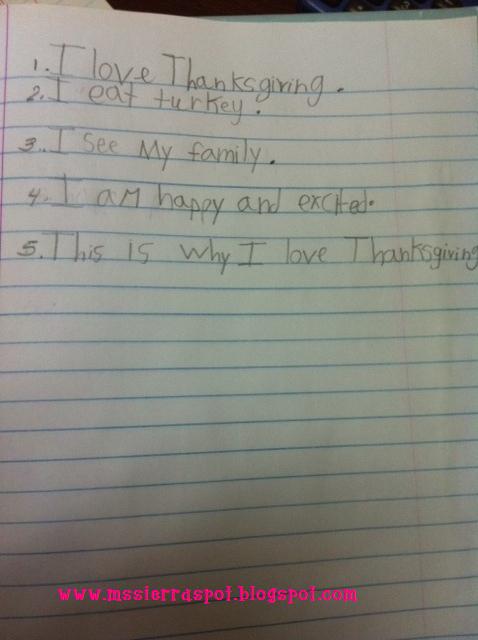 1. I love Thanksgiving.
2. I eat turkey.
3. I see My family.
4. I aM happy and excited.
5. This is why I love Thanksgiving
www.mssierraspol.blogspot.com